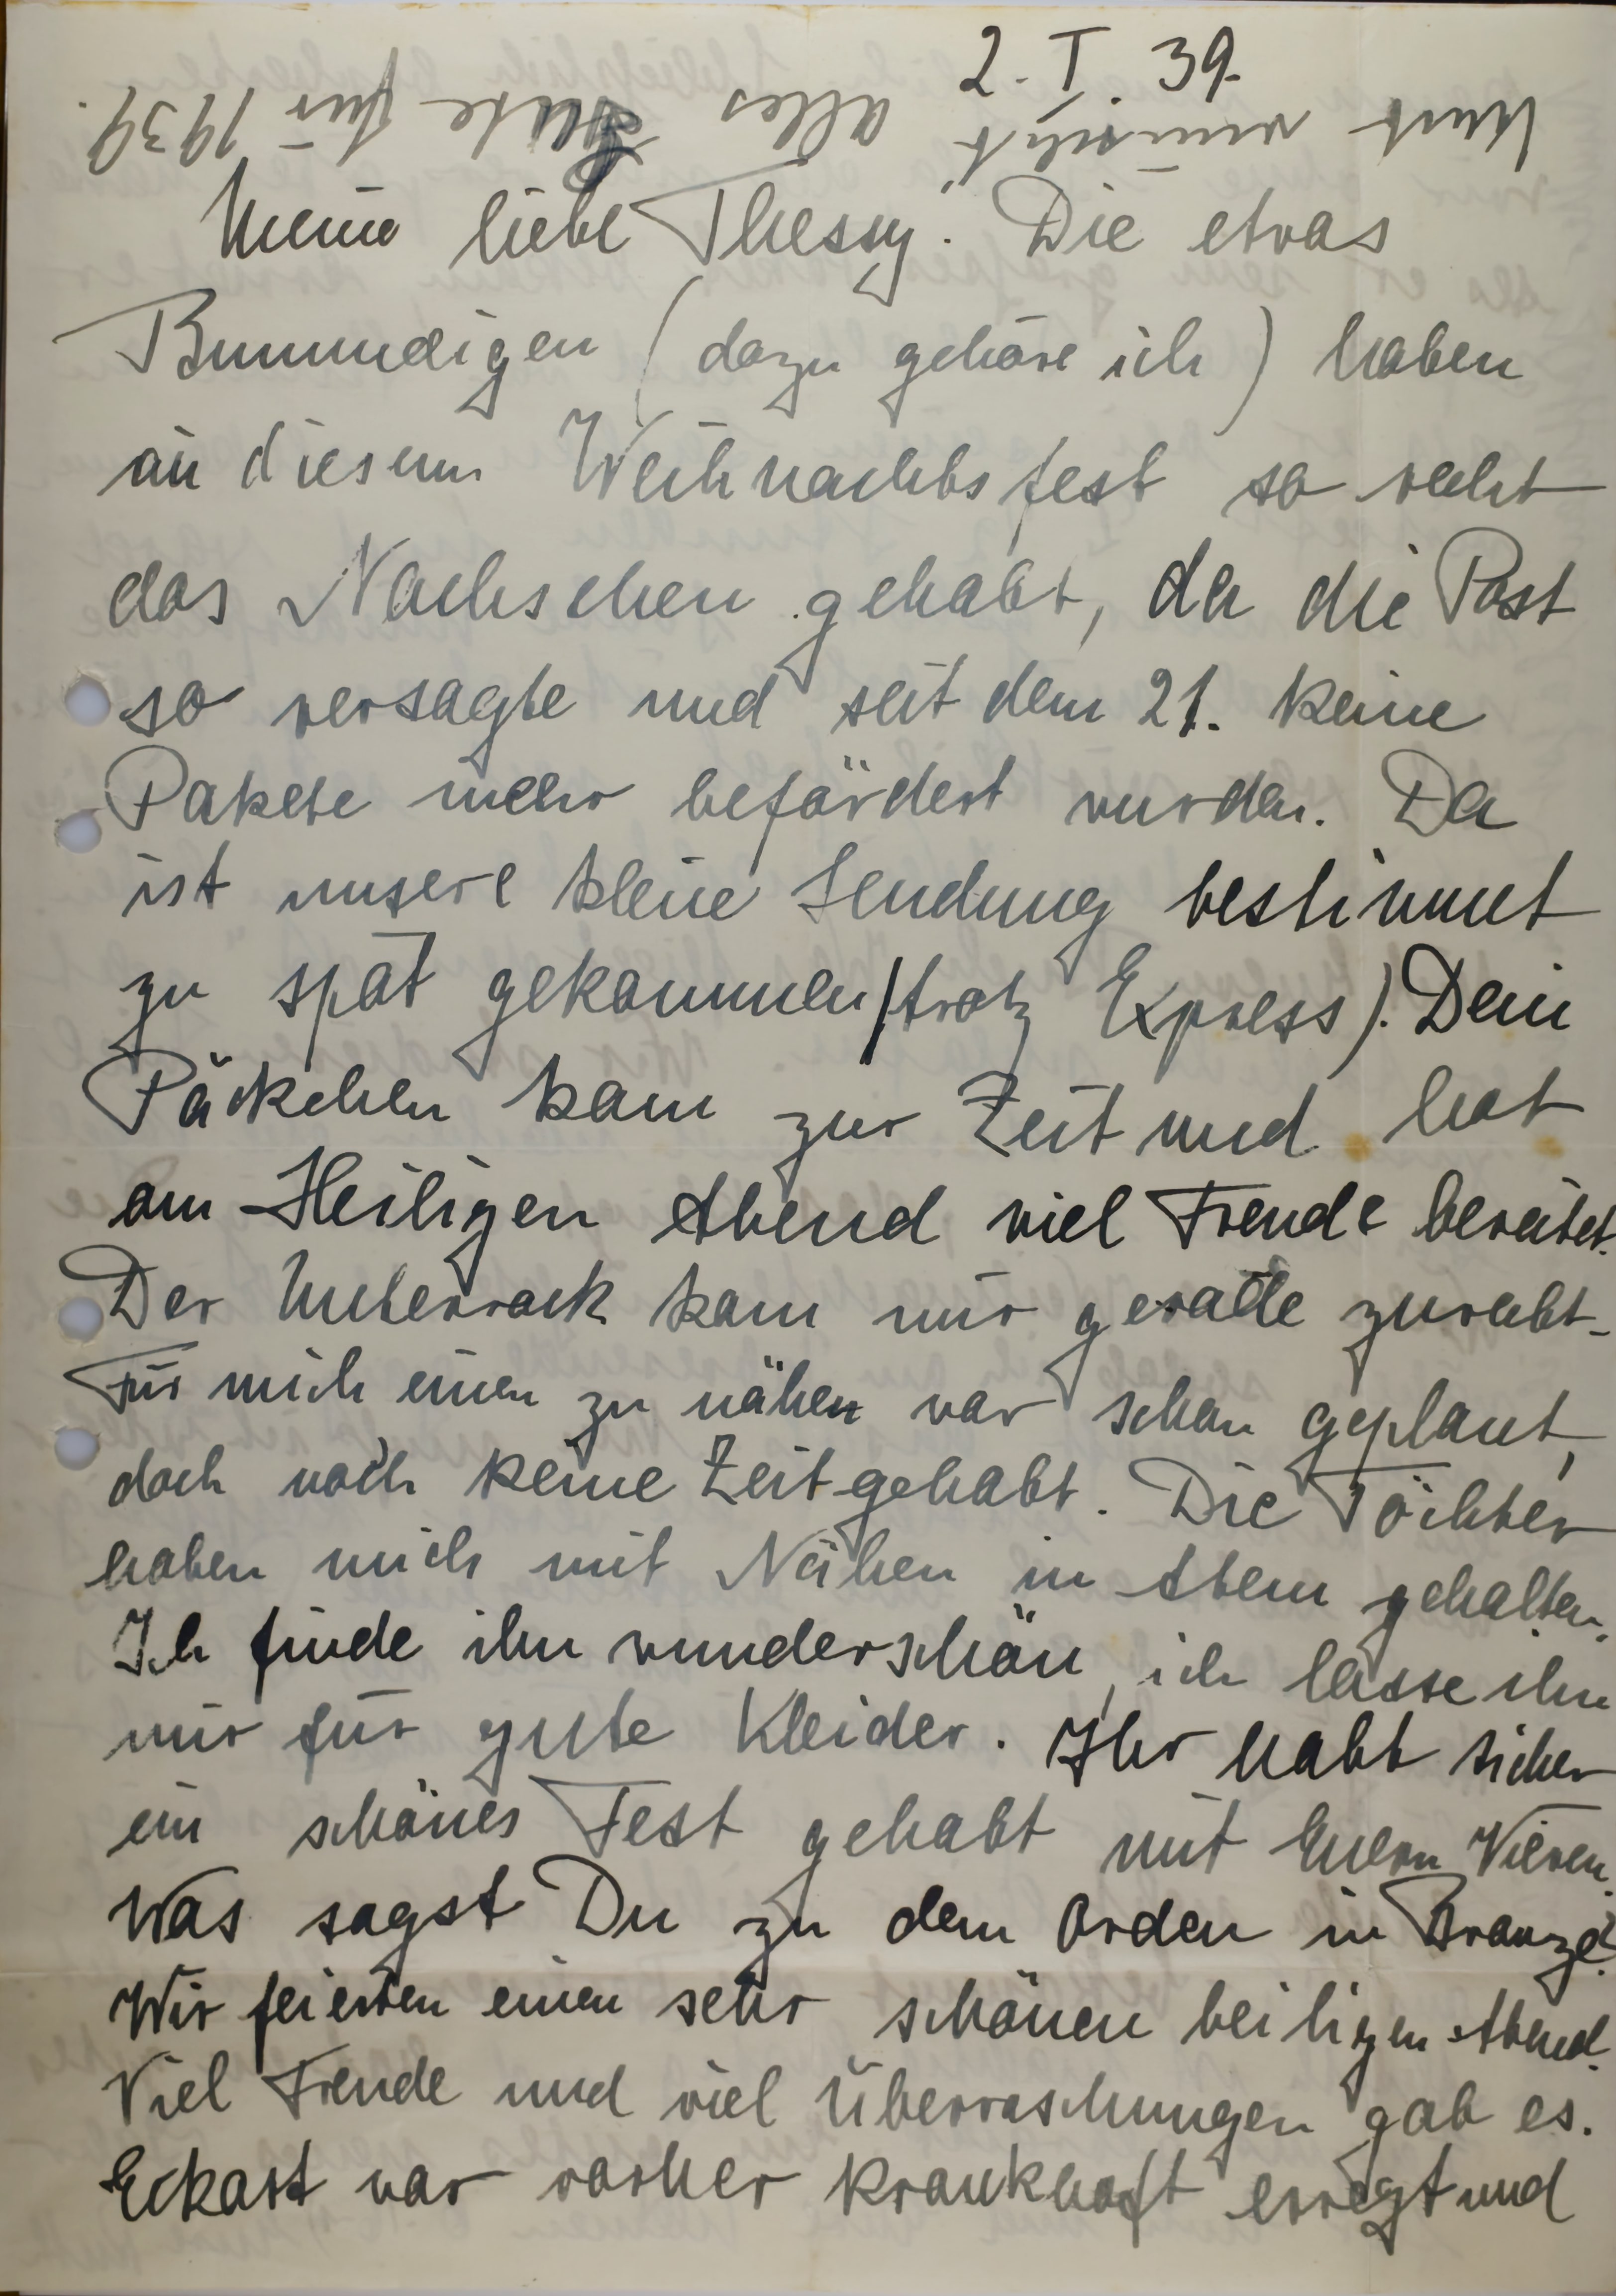 2. I. 39.
Kurt wünscht alles Gute für 1939.
Meine liebe Thessy. Die etwas
Bummeligen (dazu gehöre ich) haben
an diesem Weihnachtsfest so recht
das Nachsehen gehabt, da die Post
so versagte und seit dem 21. keine
Pakete mehr befördert wurden. Da
ist unsere kleine Sendung bestimmt
zu spät gekommen (trotz Express). Dein
Päckchen kam zur Zeit und hat
am Heiligen Abend viel Freude bereitet.
Der Unterrock kam mir gerade zurecht.
Für mich einen zu nähen war schon geplant,
doch noch keine Zeit gehabt. Die Töchter
haben mich mit Nähen in Atem gehalten.
Ich finde ihn wunderschön, ich lasse ihn
mir für gute Kleider. Ihr habt sicher
ein schönes Fest gehabt mit Euern Vieren.
Was sagst Du zu dem Orden in Bronze?
Wir feierten einen sehr schönen heiligen Abend.
Viel Freude und viel Überraschungen gab es.
Eckart war vorher krankhaft erregt und